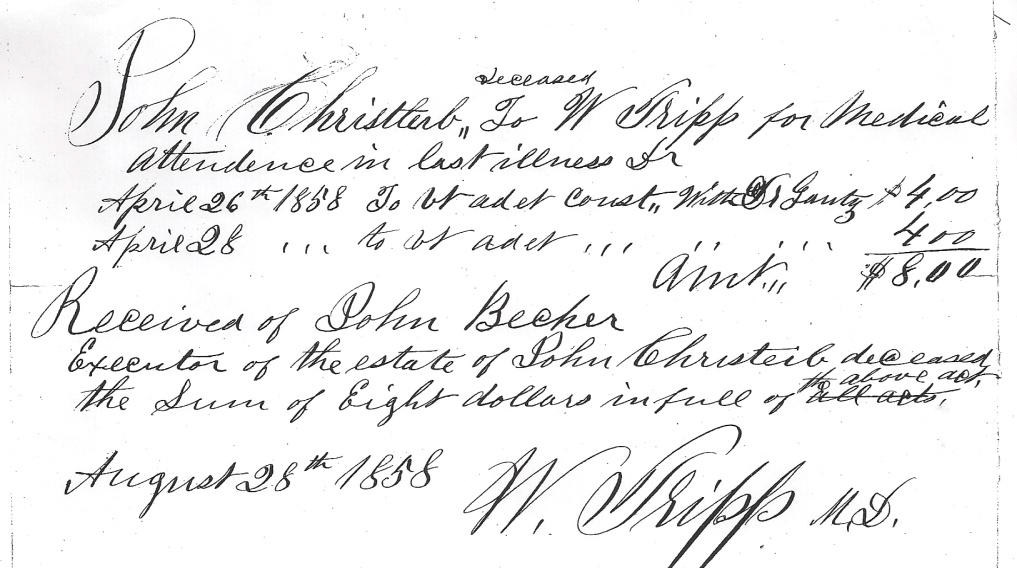 deceased
John Christlerb,, To W Tripp for Medical
Attendence in last illness Dr
April 26th 1858 To vt adet const,, With Dr Gantz $4,00
April 28 ,,, to vt adet ,,, ,, ,,, 400
Amt,,, $8,00
Received of John Becher
Executor of the estate of John Christeib deceased
the above act,
the Sum of Eight dollars in full of all acts,
August 28th 1858
W. Tripp M.D.